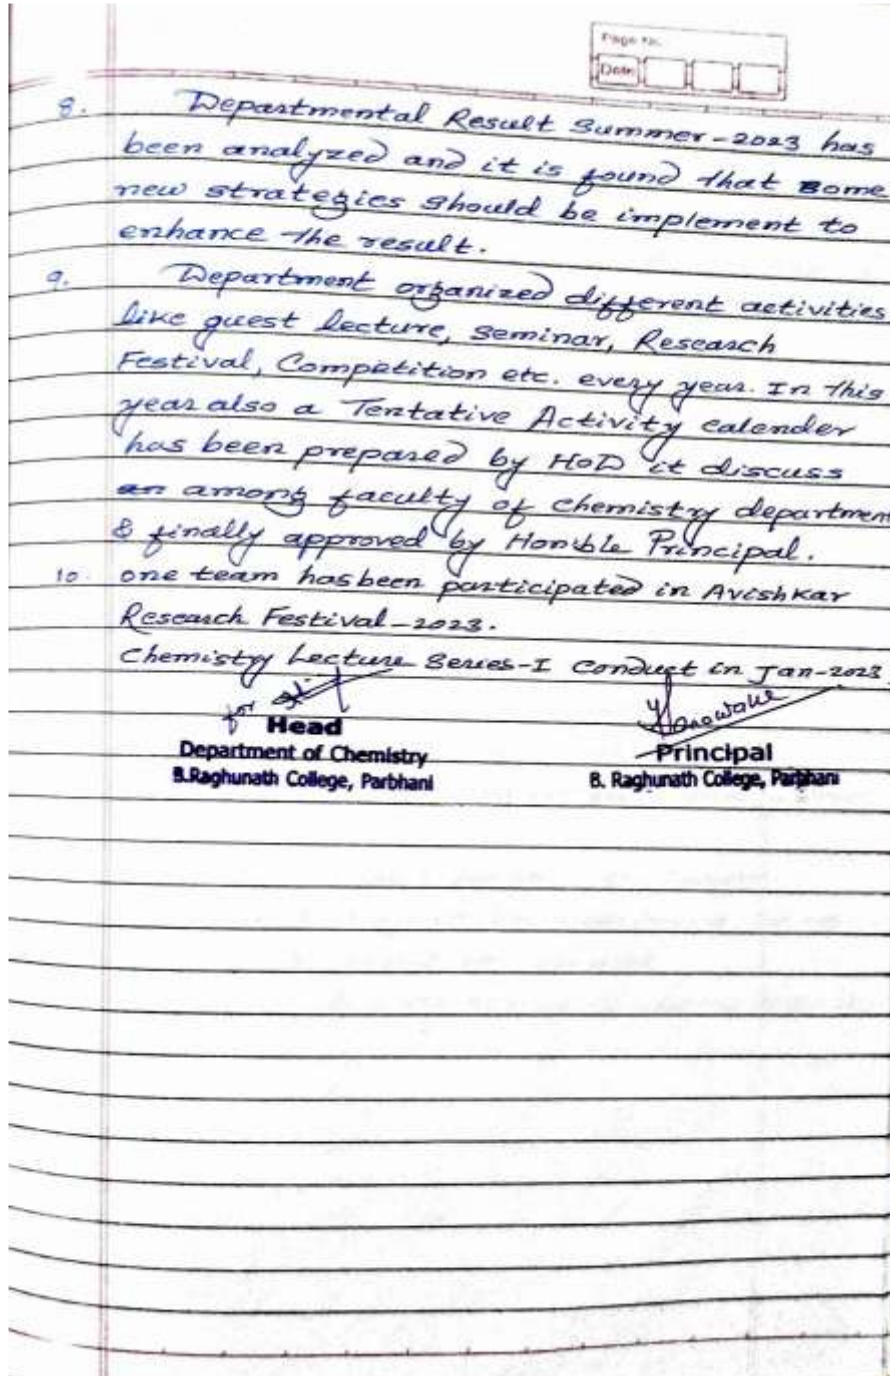 Page No.
Date
8. Departmental Result Summer-2023 has
been analyzed and it is found that some
new strategies should be implement to
enhance the result.
9. Department organized different activities
like guest lecture, Seminar, Research
Festival, Competition etc. every year. In this
year also a Tentative Activity calender
has been prepared by HoD it discuss
among faculty of chemistry department
& finally approved by Hon'ble Principal.
10. one team has been participated in Avishkar
Research Festival-2023.
Chemistry Lecture Series-I Conduct in Jan-2023
for
Head
Department of Chemistry
B.Raghunath College, Parbhani
Principal
B. Raghunath College, Parbhani